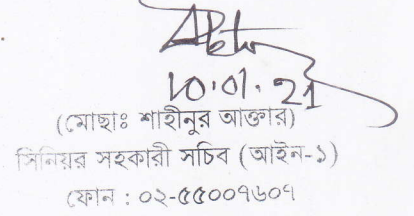 10.01.21
(মোছাঃ শাহীনুর আক্তার)
সিনিয়র সহকারী সচিব (আইন-১)
ফোন : ০২-৫৫০০৭৬০৭